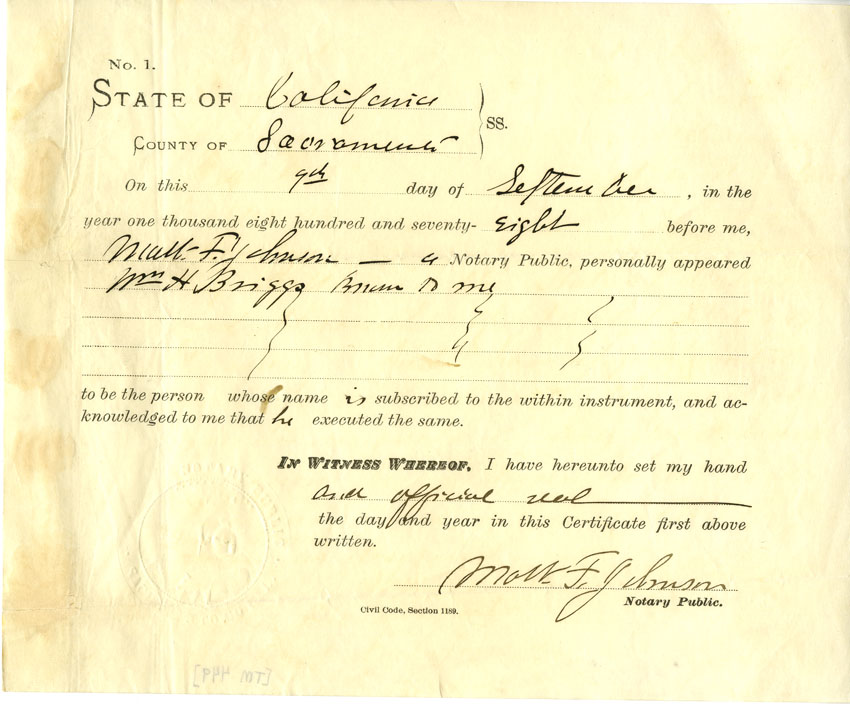 No. 1.
STATE OF California
COUNTY OF Sacramento
SS.
On this 9th day of September, in the
year one thousand eight hundred and seventy- eight before me,
Matt F. Johnson — a Notary Public, personally appeared
Wm H Briggs known to me
to be the person whose name is subscribed to the within instrument, and ac-
knowledged to me that he executed the same.
IN WITNESS WHEREOF, I have hereunto set my hand
and official seal
the day and year in this Certificate first above
written.
Matt F. Johnson
Notary Public.
Civil Code, Section 1189.